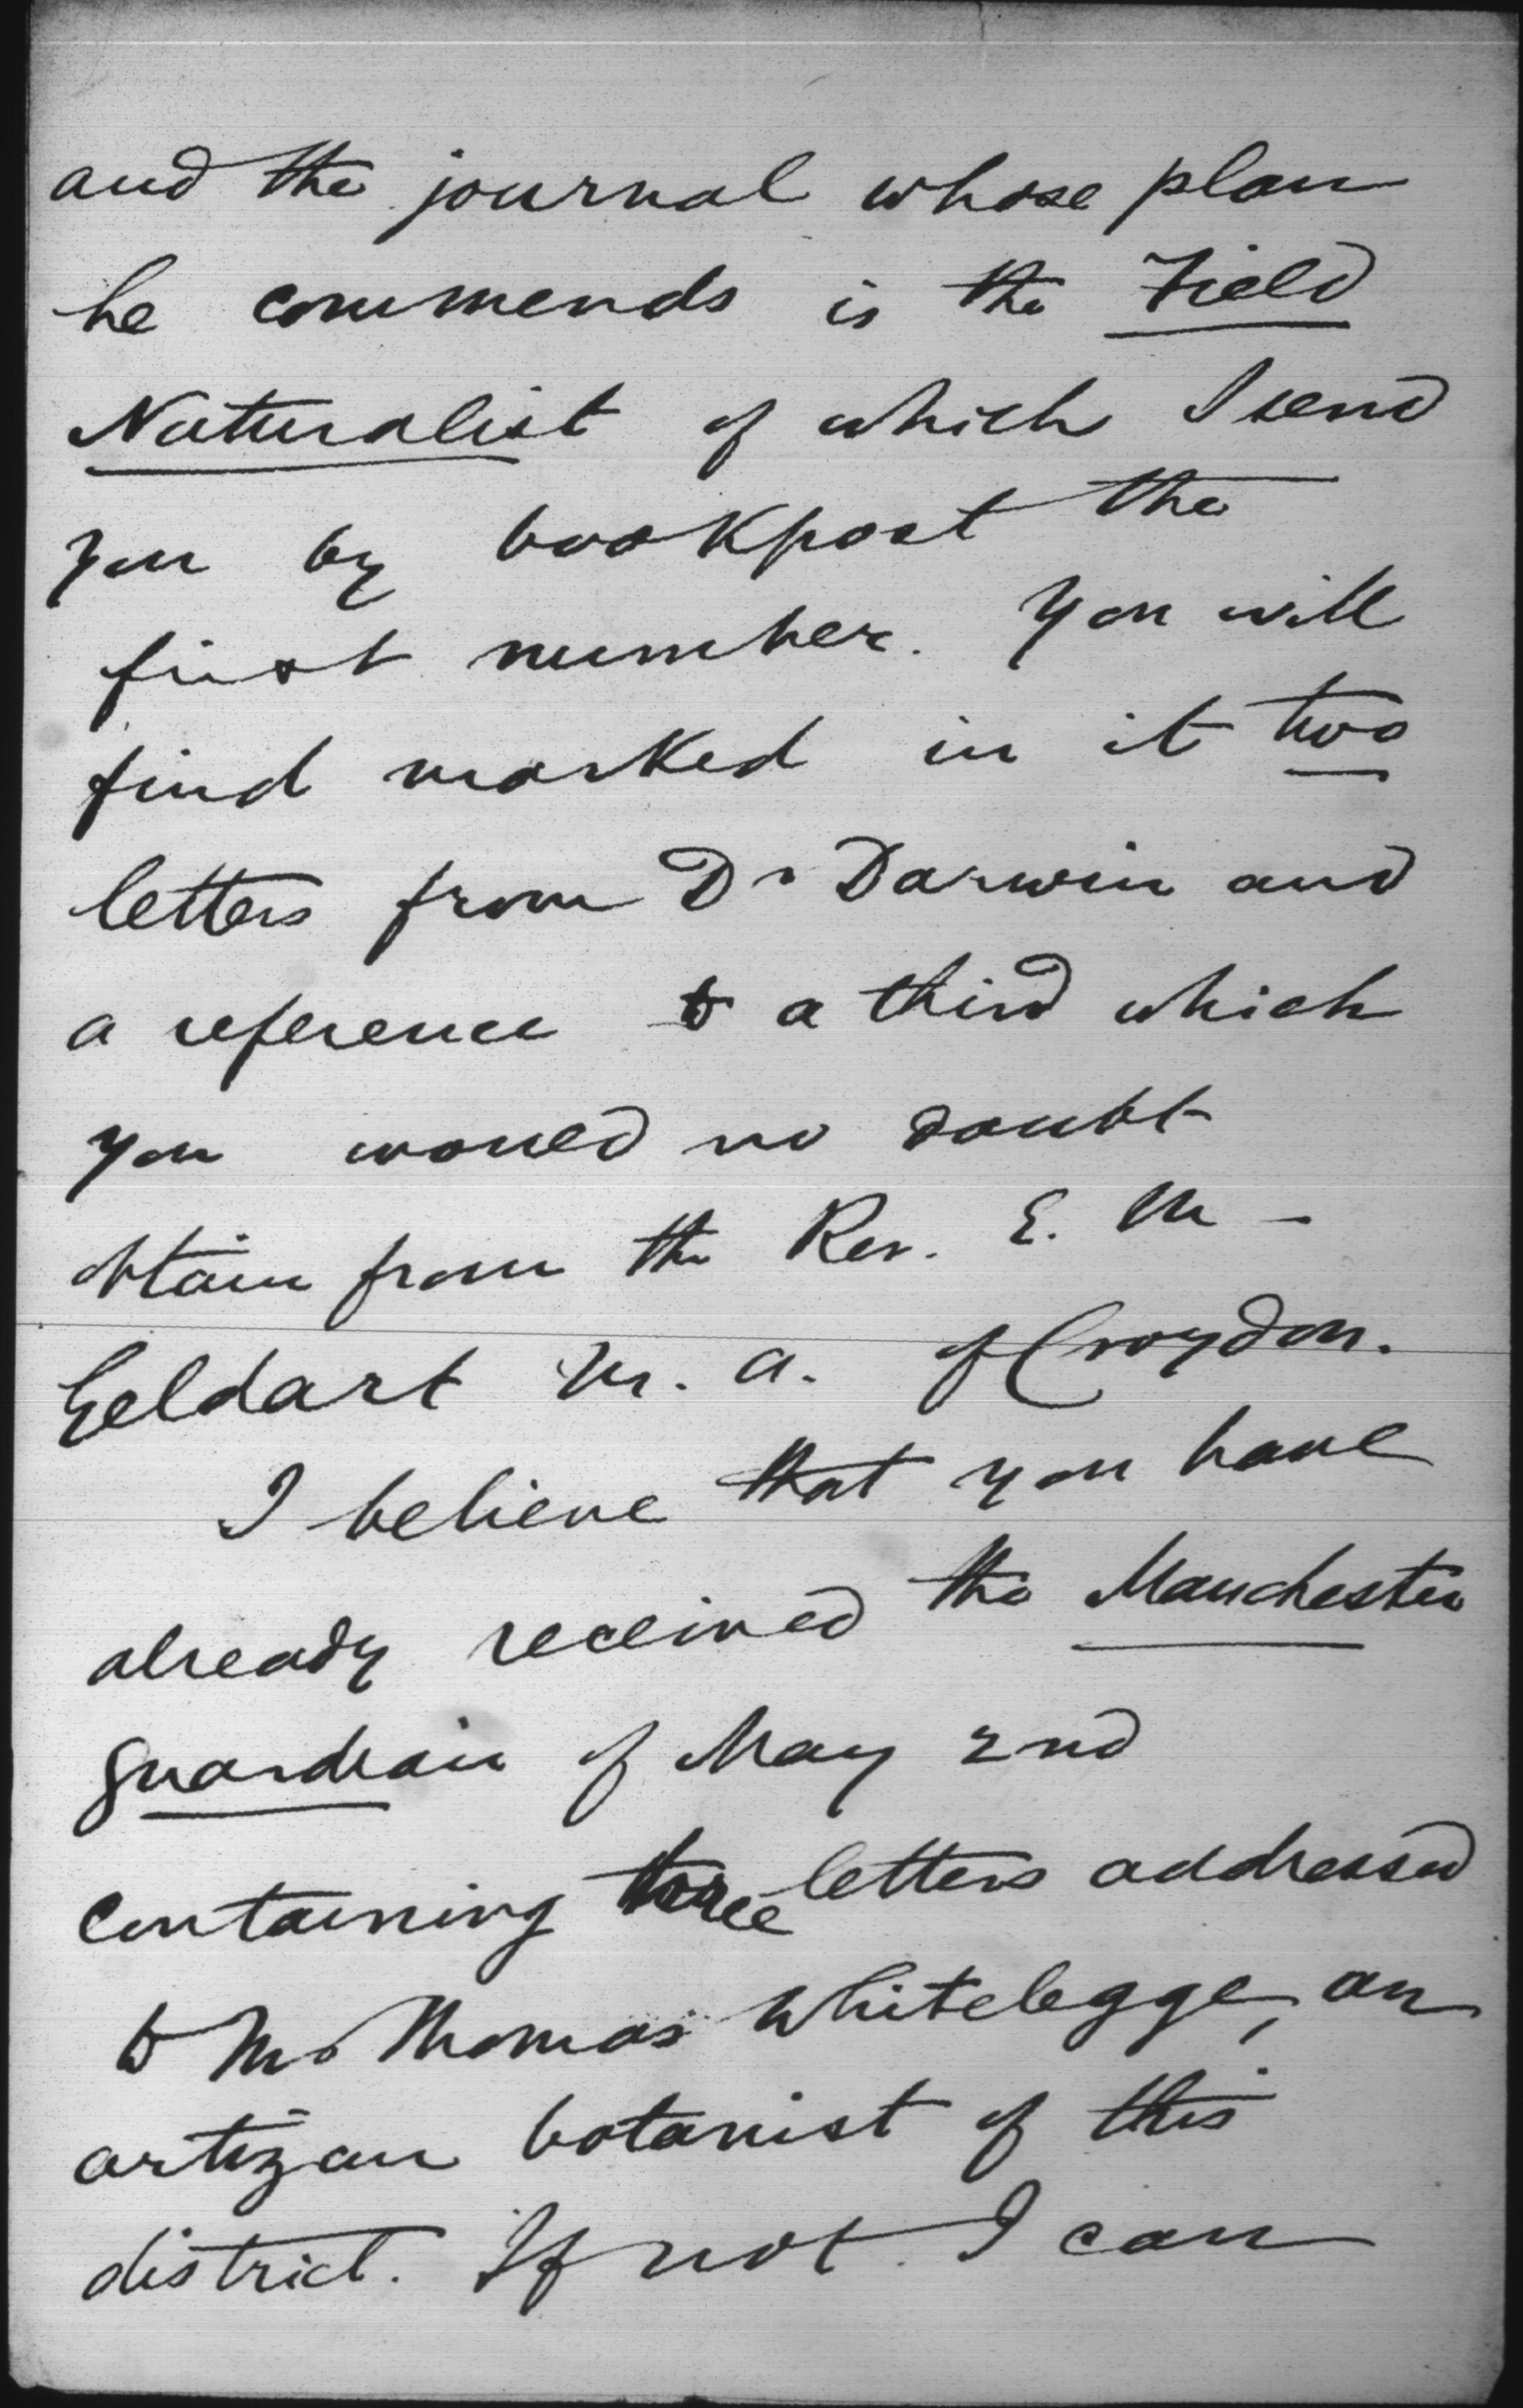 and the journal whose plan
he commends is the Field
Naturalist of which I send
you by bookpost the
first number. You will
find marked in it two
letters from Dr Darwin and
a reference to a third which
you would no doubt
obtain from the Rev. E. M -
Geldart M. A. of Croydon.
I believe that you have
already received the Manchester
Guardian of May 2nd
containing three letters addressed
to Mr Thomas Whitelegge, an
artizan botanist of this
district. If not I can